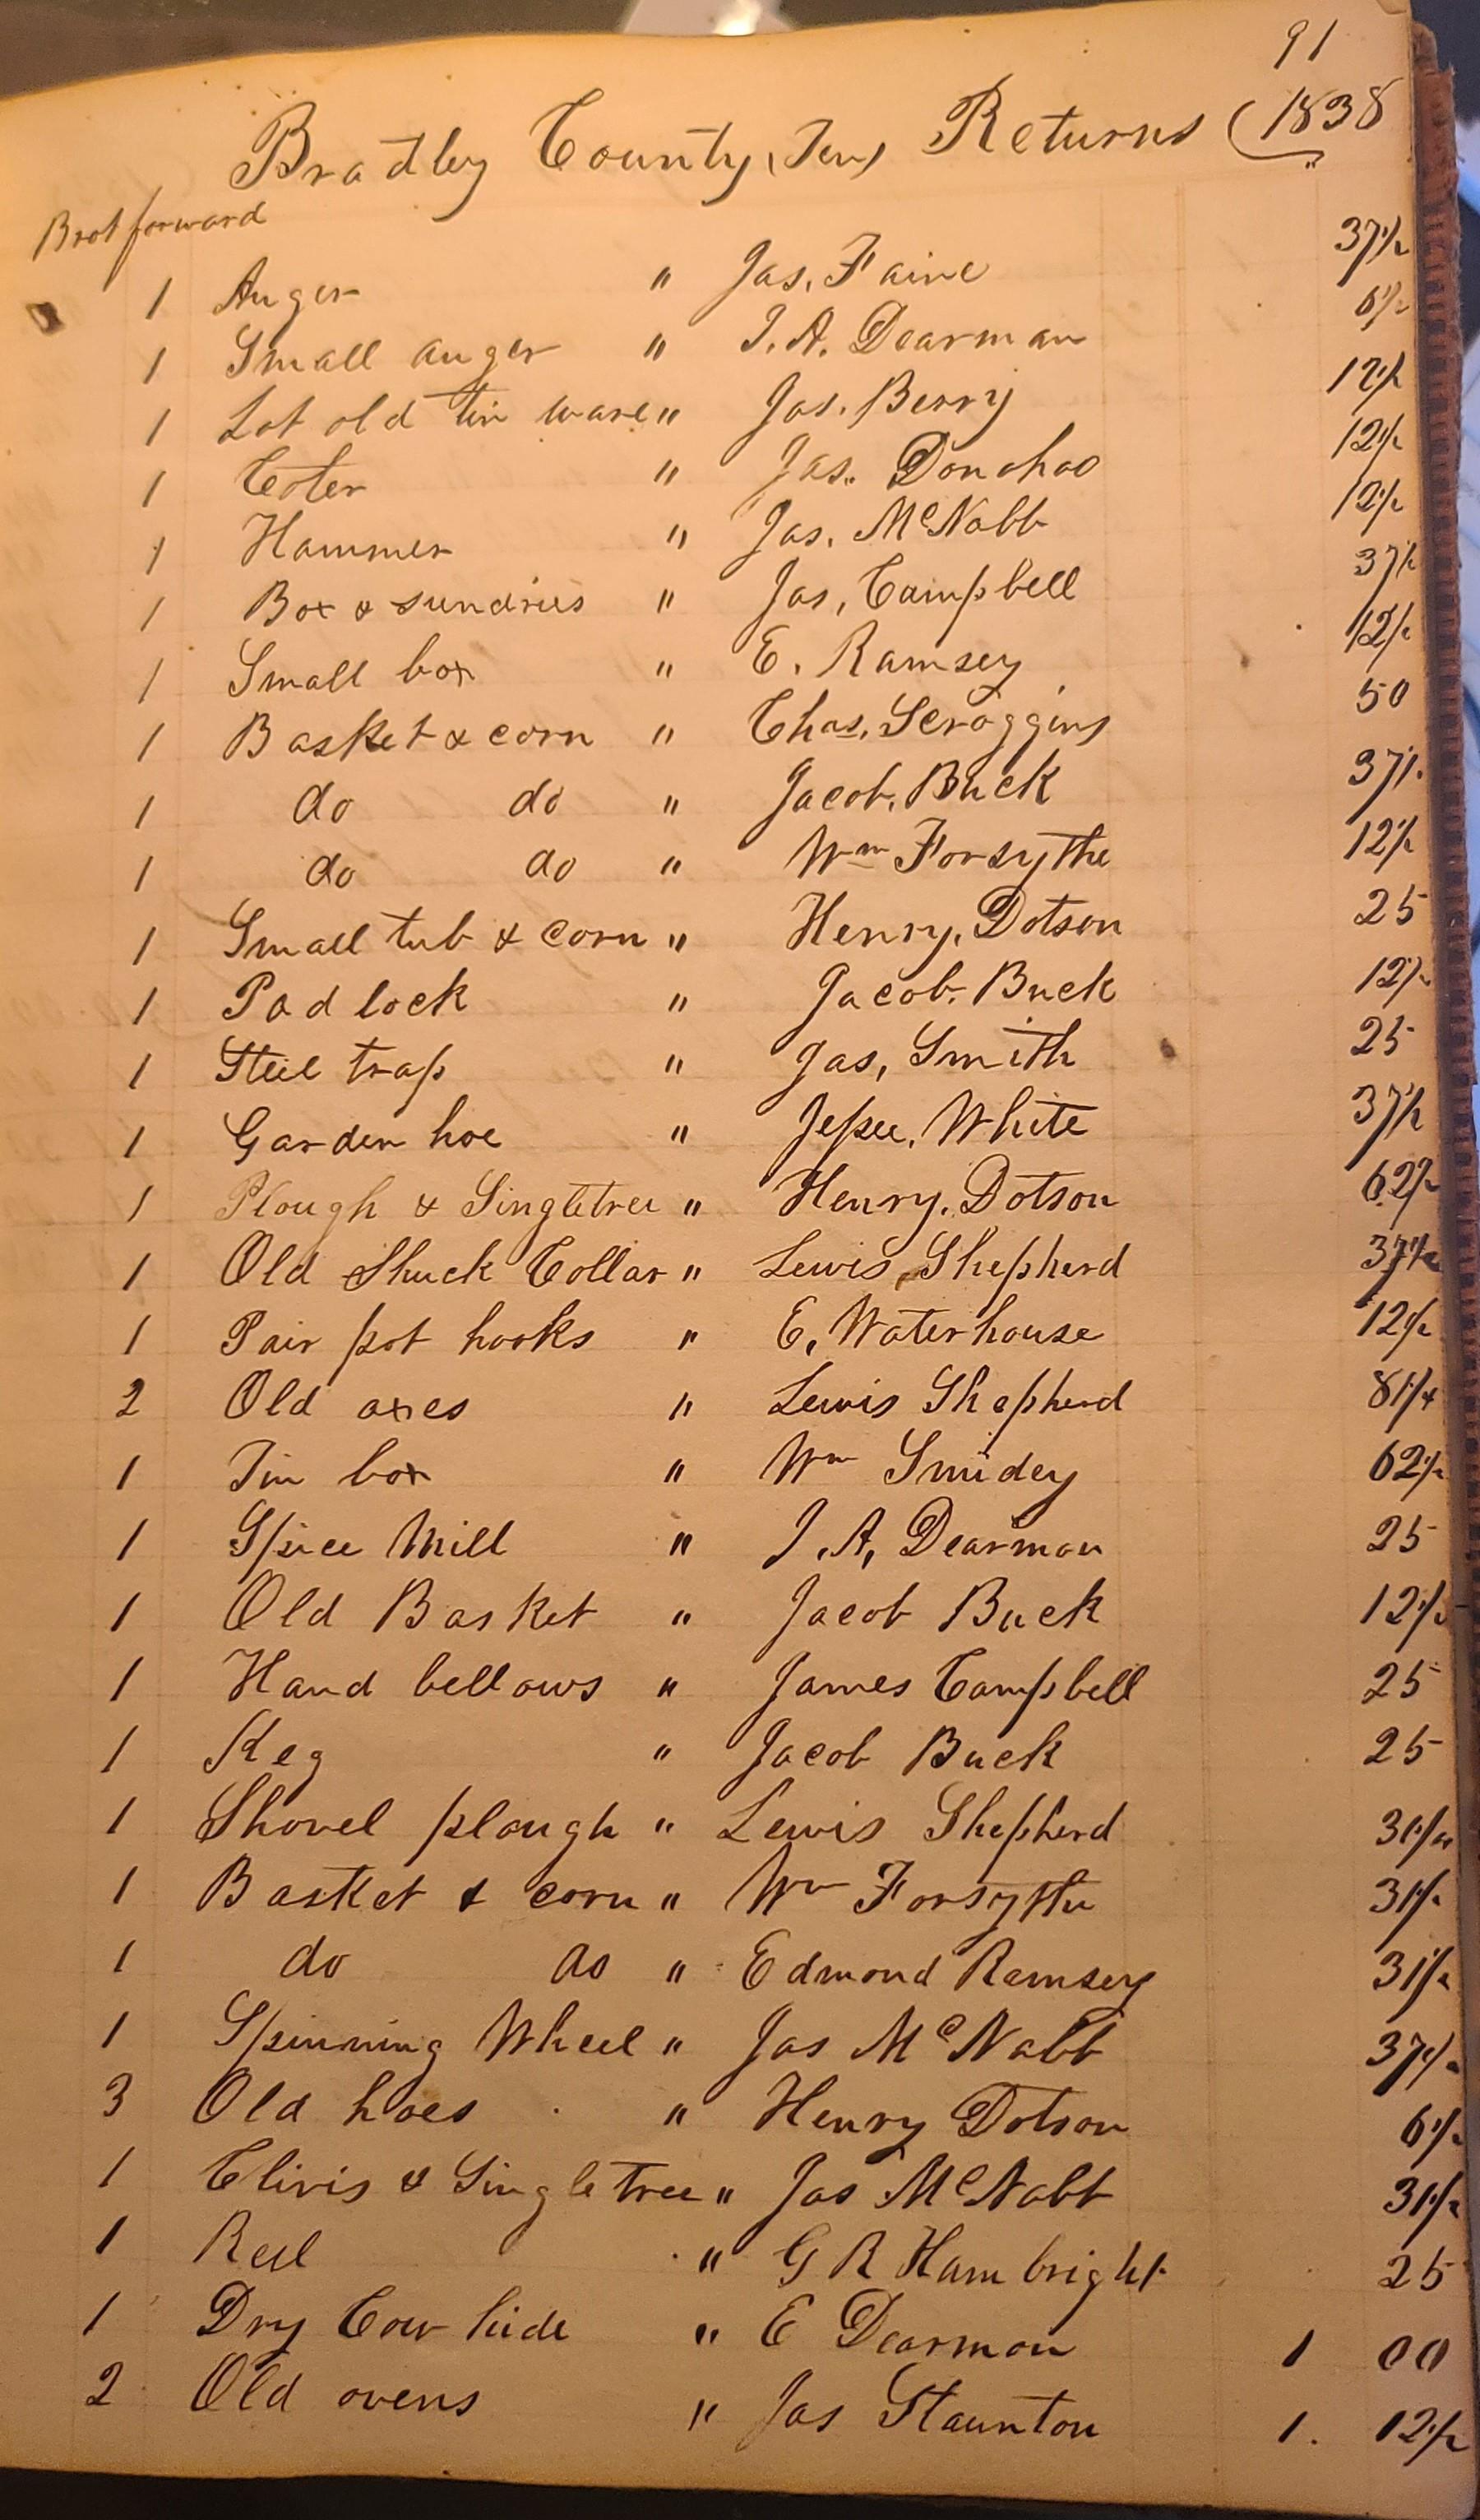 91
Bradley County, Ten, Returns (1838
Brot forward
1 Auger " Jas. Faine 37 1/2
1 Small auger " J. A. Dearman 6 1/2
1 Lot old tin ware " Jas. Berry 12 1/2
1 Coter " Jas. Donohoo 12 1/2
1 Hammer " Jas. McNabb 12 1/2
1 Box & sundries " Jas, Campbell 37 1/2
1 Small box " E. Ramsey 12 1/2
1 Basket & corn " Chas. Scroggins 50
1 do do " Jacob. Buck 37 1/2
1 do do " Wm Forsythe 12 1/2
1 Small tub & corn " Henry. Dotson 25
1 Pad lock " Jacob. Buck 12 1/2
1 Steel trap " Jas, Smith 25
1 Garden hoe " Jessee, White 37 1/2
1 Plough & Singletree " Henry. Dotson 62 1/2
1 Old Shuck Collar " Lewis Shepherd 37 1/2
1 Pair pot hooks " E, Waterhouse 12 1/2
2 Old axes " Lewis Shepherd 81 1/4
1 Tin box " Wm Smidey 62 1/2
1 Spice Mill " J. A, Dearman 25
1 Old Basket " Jacob Buck 12 1/2
1 Hand bellows " James Campbell 25
1 Keg " Jacob Buck 25
1 Shovel plough " Lewis Shepherd 31 1/4
1 Basket & corn " Wm Forsythe 31 1/2
1 do do " Edmond Ramsey 31 1/2
1 Spinning Wheel " Jas McNabb 37 1/2
3 Old hoes " Henry Dotson 6 1/2
1 Clivis & Singletree " Jas McNabb 31 1/2
1 Reel " G R Hambright 25
1 Dry Cow hide " E Dearman 1 00
2 Old ovens " Jas Staunton 1. 12 1/2